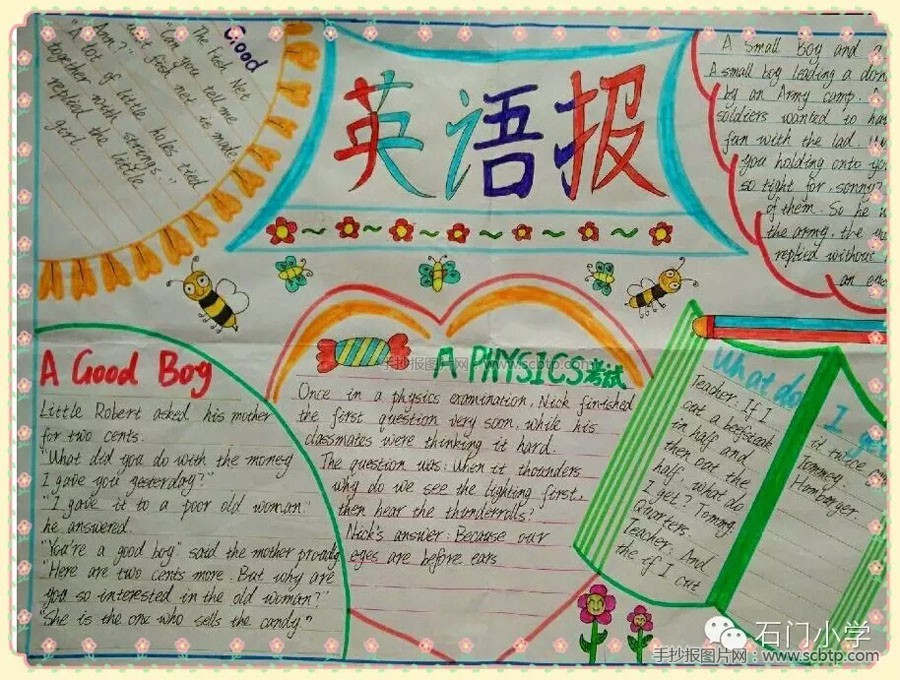 英语报
Good
The Fish Net
"Can you tell me
what fish net is made,
Ann?"
"A lot of little holes tied
together with strings."
replied the little
girl.
A Small Boy and a
A small boy leading a don
by an Army camp.
soldiers wanted to ha
fun with the lad.
you holding onto yo
so tight for, sonny?
of them. So he
the army, the
replied without
an
A Good Boy
Little Robert asked his mother
for two cents.
"What did you do with the money
I gave you yesterday?"
"I gave it to a poor old woman."
he answered.
"You're a good boy" said the mother proudy
"Here are two cents more. But why are
you so interested in the old woman?"
"She is the one who sells the candy?
A PHYSICS考试
Once in a physics examination, Nick finished
the first question very soon, while his
classmates were thinking it hard.
The question was: When it thounders
why do we see the lighting first,
then hear the thunderrolls?
Nick's answer: Because our
eyes are before ears
What do
Teacher: If I
cut a beefsteak
in half and
then cut the
half, what do
I get? Tommy.
Quarters.
Teacher: And
the if I cut
I get
it twice
Tommey.
Hamborger.
手抄报图片网:www.scbtp.com
石门小学
手抄报图片网:www.scbtp.com